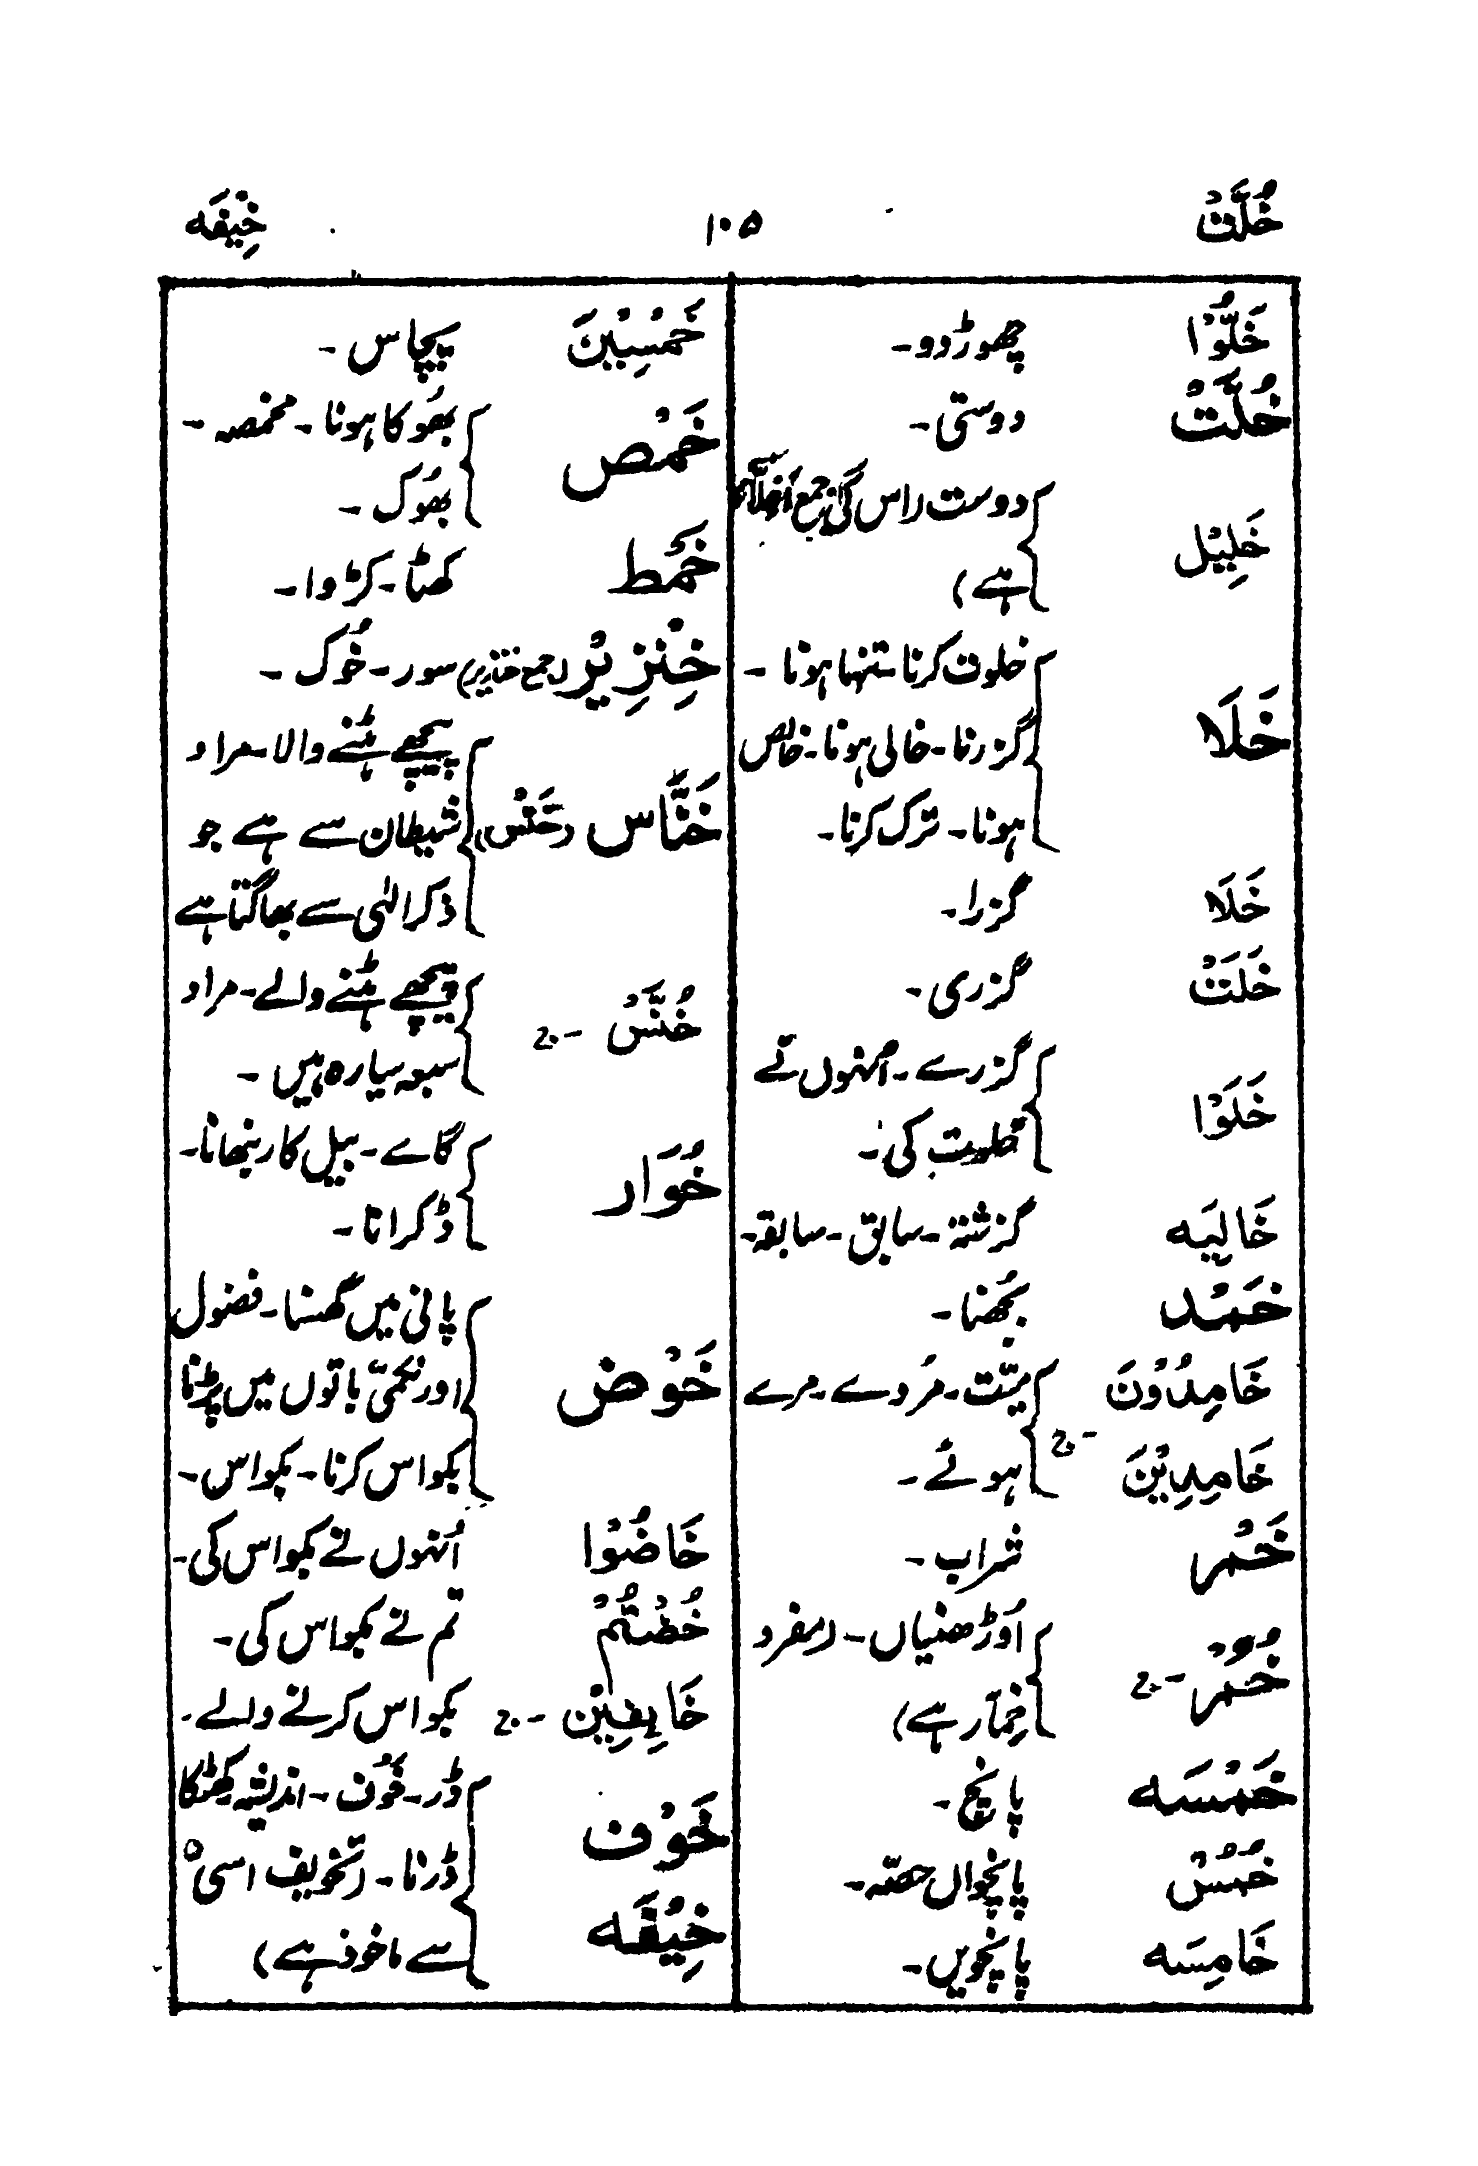 خُلَّتْ ۱۰۵ خِيْفَه
خَلُّوْا چھوڑ دو۔
خُلَّتْ دوستی۔
خَلِيْل دوست (اس کی جمع اَخِلَّآء
ہے)
خلوت کرنا۔ تنہا ہونا۔
خَلَا گزرنا۔ خالی ہونا۔ خالص
ہونا۔ ترک کرنا۔
خَلَا گزرا۔
خَلَتْ گزری۔
خَلَوْا گزرے۔ اُنہوں نے
خلوت کی۔
خَالِيَه گزشتہ۔ سابق۔ سابقہ۔
خَمْد بُجھنا۔
خَامِدُوْنَ میّت۔ مُردے۔ مرے
خَامِدِيْنَ ۔ج ہوئے۔
خَمْر شراب۔
خُمُرْ ۔ج اوڑھنیاں۔ (مفرد
خِمَار ہے)
خَمْسَه پانچ۔
خُمُسْ پانچواں حصّہ۔
خَامِسَه پانچویں۔
خَمْسِيْنَ پچاس۔
خَمْص بھُوکا ہونا۔ مخمصہ۔
بھُوک۔
خَمْط کھٹا۔ کڑوا۔
خِنْزِيْر (جمع خنازیر) سور۔ خُوک۔
پیچھے ہٹنے والا۔ مراد
خَنَّاس (خَنْس) شیطان سے ہے جو
ذکر الٰہی سے بھاگتا ہے
خُنَّسْ ۔ج پیچھے ہٹنے والے۔ مراد
سبعہ سیارہ ہیں۔
خُوَار گائے۔ بیل کا رنبھانا۔
ڈکرانا۔
پانی میں گھسنا۔ فضول
خَوْض اور نکمّی باتوں میں پڑنا
بکواس کرنا۔ بکواس۔
خَاضُوْا اُنہوں نے بکواس کی۔
خُضْتُمْ تم نے بکواس کی۔
خَائِضِيْنَ ۔ج بکواس کرنے والے۔
خَوْف ڈر۔ خَوف۔ اندیشہ۔ کھٹکا
ڈرنا۔ (تخویف اسی
خِيْفَه سے ماخوذ ہے)